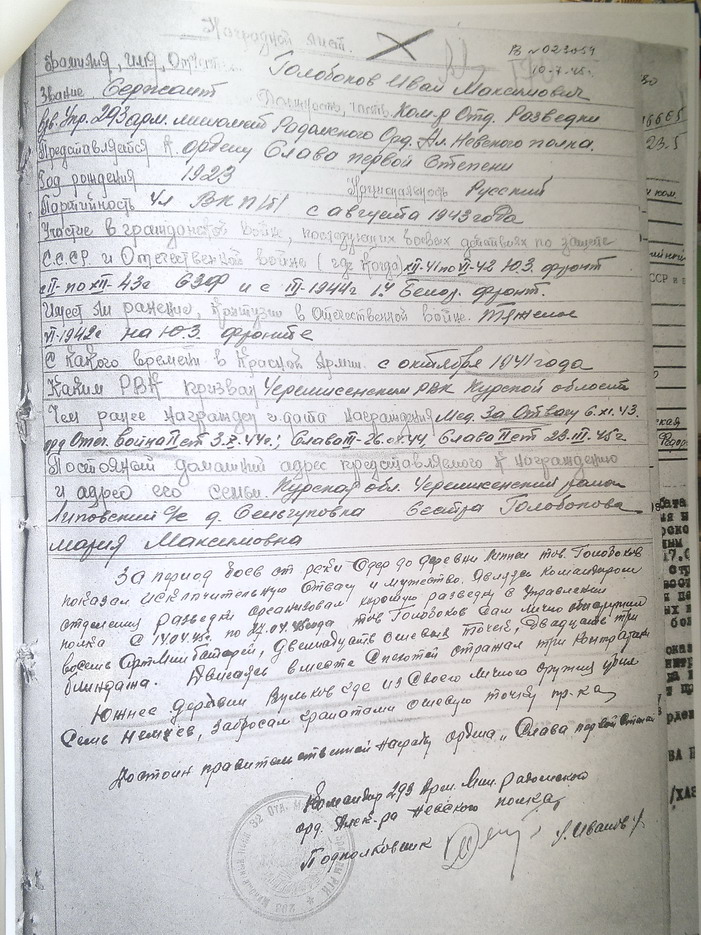 Наградной лист.
В №023054
10-7-45г.
Фамилия, имя, Отчест... Голобоков Иван Максимович
Звание Сержант Должность, часть. Ком-р Отд. Разведки
взв. Упр. 293 арм. миномет Радомского Орд. Ал. Невского полка.
Представляется к. ордену Слава первой Степени
Год рождения 1923 Национальность Русский
Партийность Чл ВКП/б/ с августа 1943 года
Участие в гражданской войне, последующих боевых действиях по защите
С.С.С.Р. и Отечественной войне (где когда) XII-41 по VI-42 Ю.З. фронт
с II- по XII-43г СЗФ и с III-1944г 1й Белор. фронт.
Имеет ли ранение, контузии в Отечественной войне. Тяжелое
VI-1942г на Ю.З. фронте
С какого времени в Красной Армии. с октября 1941 года
Каким РВК призван Черемисенским РВК Курской области
Чем ранее награжден и дата награждения Мед. За Отвагу 6.XI.43.
орд Отеч. Война II ст 3.X.44г.; Слава III-26.04.44 Слава II ст 29.III.45г.
Постояный домашний адрес представляемого к награждению
и адрес его семьи. Курская обл. Черемисенский район
Липовский с/с д. Сельгуповка Сестра Голобокова
Мария Максимовна
За период боев от реки Одер до деревни тов. Голобоков
показал исключительную Отвагу и мужество. Являясь командиром
отделения разведки организовал хорошую разведку в Управлении
полка с 14.04.45г. по 27.04.45 года тов Голобоков Сам лично обнаружил
восемь Арт Мин батарей, двенадцать огневых точек, двадцать три
блиндажа. Двигаясь вместе с пехотой отражал три контратаки
Южнее деревни Вульков где из Своего личного оружия убил
Семь Немцев, забросал гранатами огневую точку пр-ка
Достоин правительственной награды ордена „Слава первой Степени
Командир 293 Арм. Мин. Радомского
орд. Алек-ра Невского полка
Подполковник /Иванов/